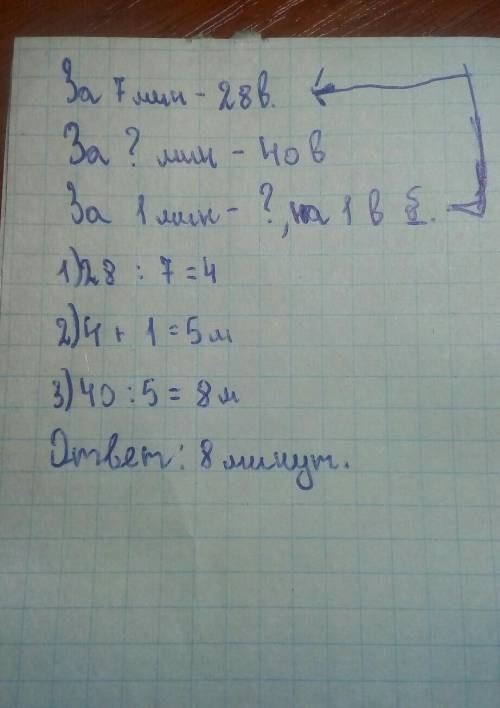 За 7 мин - 28 в.
За ? мин - 40 в
За 1 мин - ?, на 1 в б.
1) 28 : 7 = 4
2) 4 + 1 = 5 м
3) 40 : 5 = 8 м
Ответ: 8 минут.